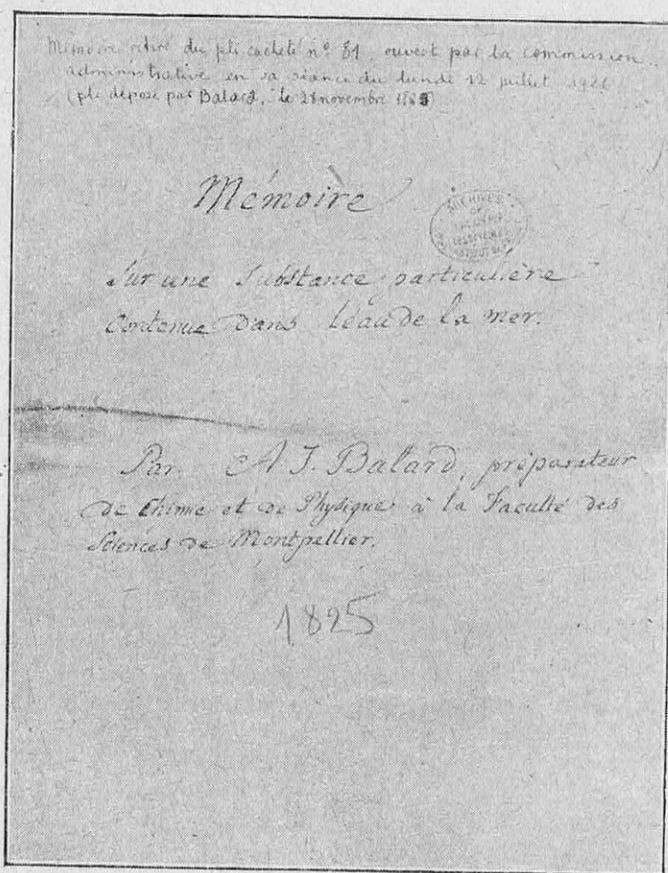 Mémoire retiré du pli cacheté nº 81 ouvert par la commission
administrative en sa séance du lundi 12 juillet 1926
(pli déposé par Balard, le novembre
Mémoire
ARCHIVES
Sur une Substance particulière
Contenue Dans l'eau de la mer.
Par A J. Balard, préparateur
de Chimie et de Physique à la Faculté des
Sciences de Montpellier.
1825